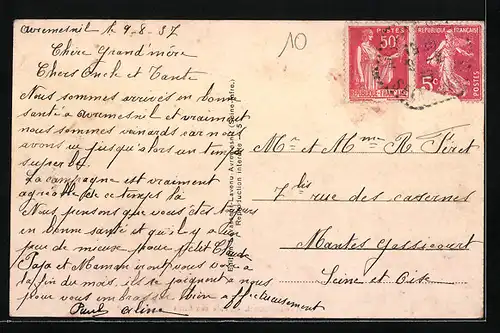 avremesnil le 9-8-37
10
Chère Grand'mère
Chers Oncle et Tante
Nous sommes arrivés en bonne
santé a avremesnil et vraiment
nous sommes veinards car nous
avons eu jusqu'alors un temps
superbe
La campagne est vraiment
agréable de ce temps là
Nous pensons que vous êtes
en bonne santé et qu'il y a
peu de mieux pour petit Claude
Papa et Maman iront vous voir a
la fin du mois, ils se joignent a nous
pour vous embrasser bien affectueusement
Paul Aline
Mr et Mme R. Féret
7bis rue des casernes
Mantes Gassicourt
Seine et Oise
POSTES
50c
REPUBLIQUE FRANÇAISE
REPUBLIQUE FRANÇAISE
5c
POSTES
Lavenu Avremesnil (Seine-Infre.)
Reproduction interdite